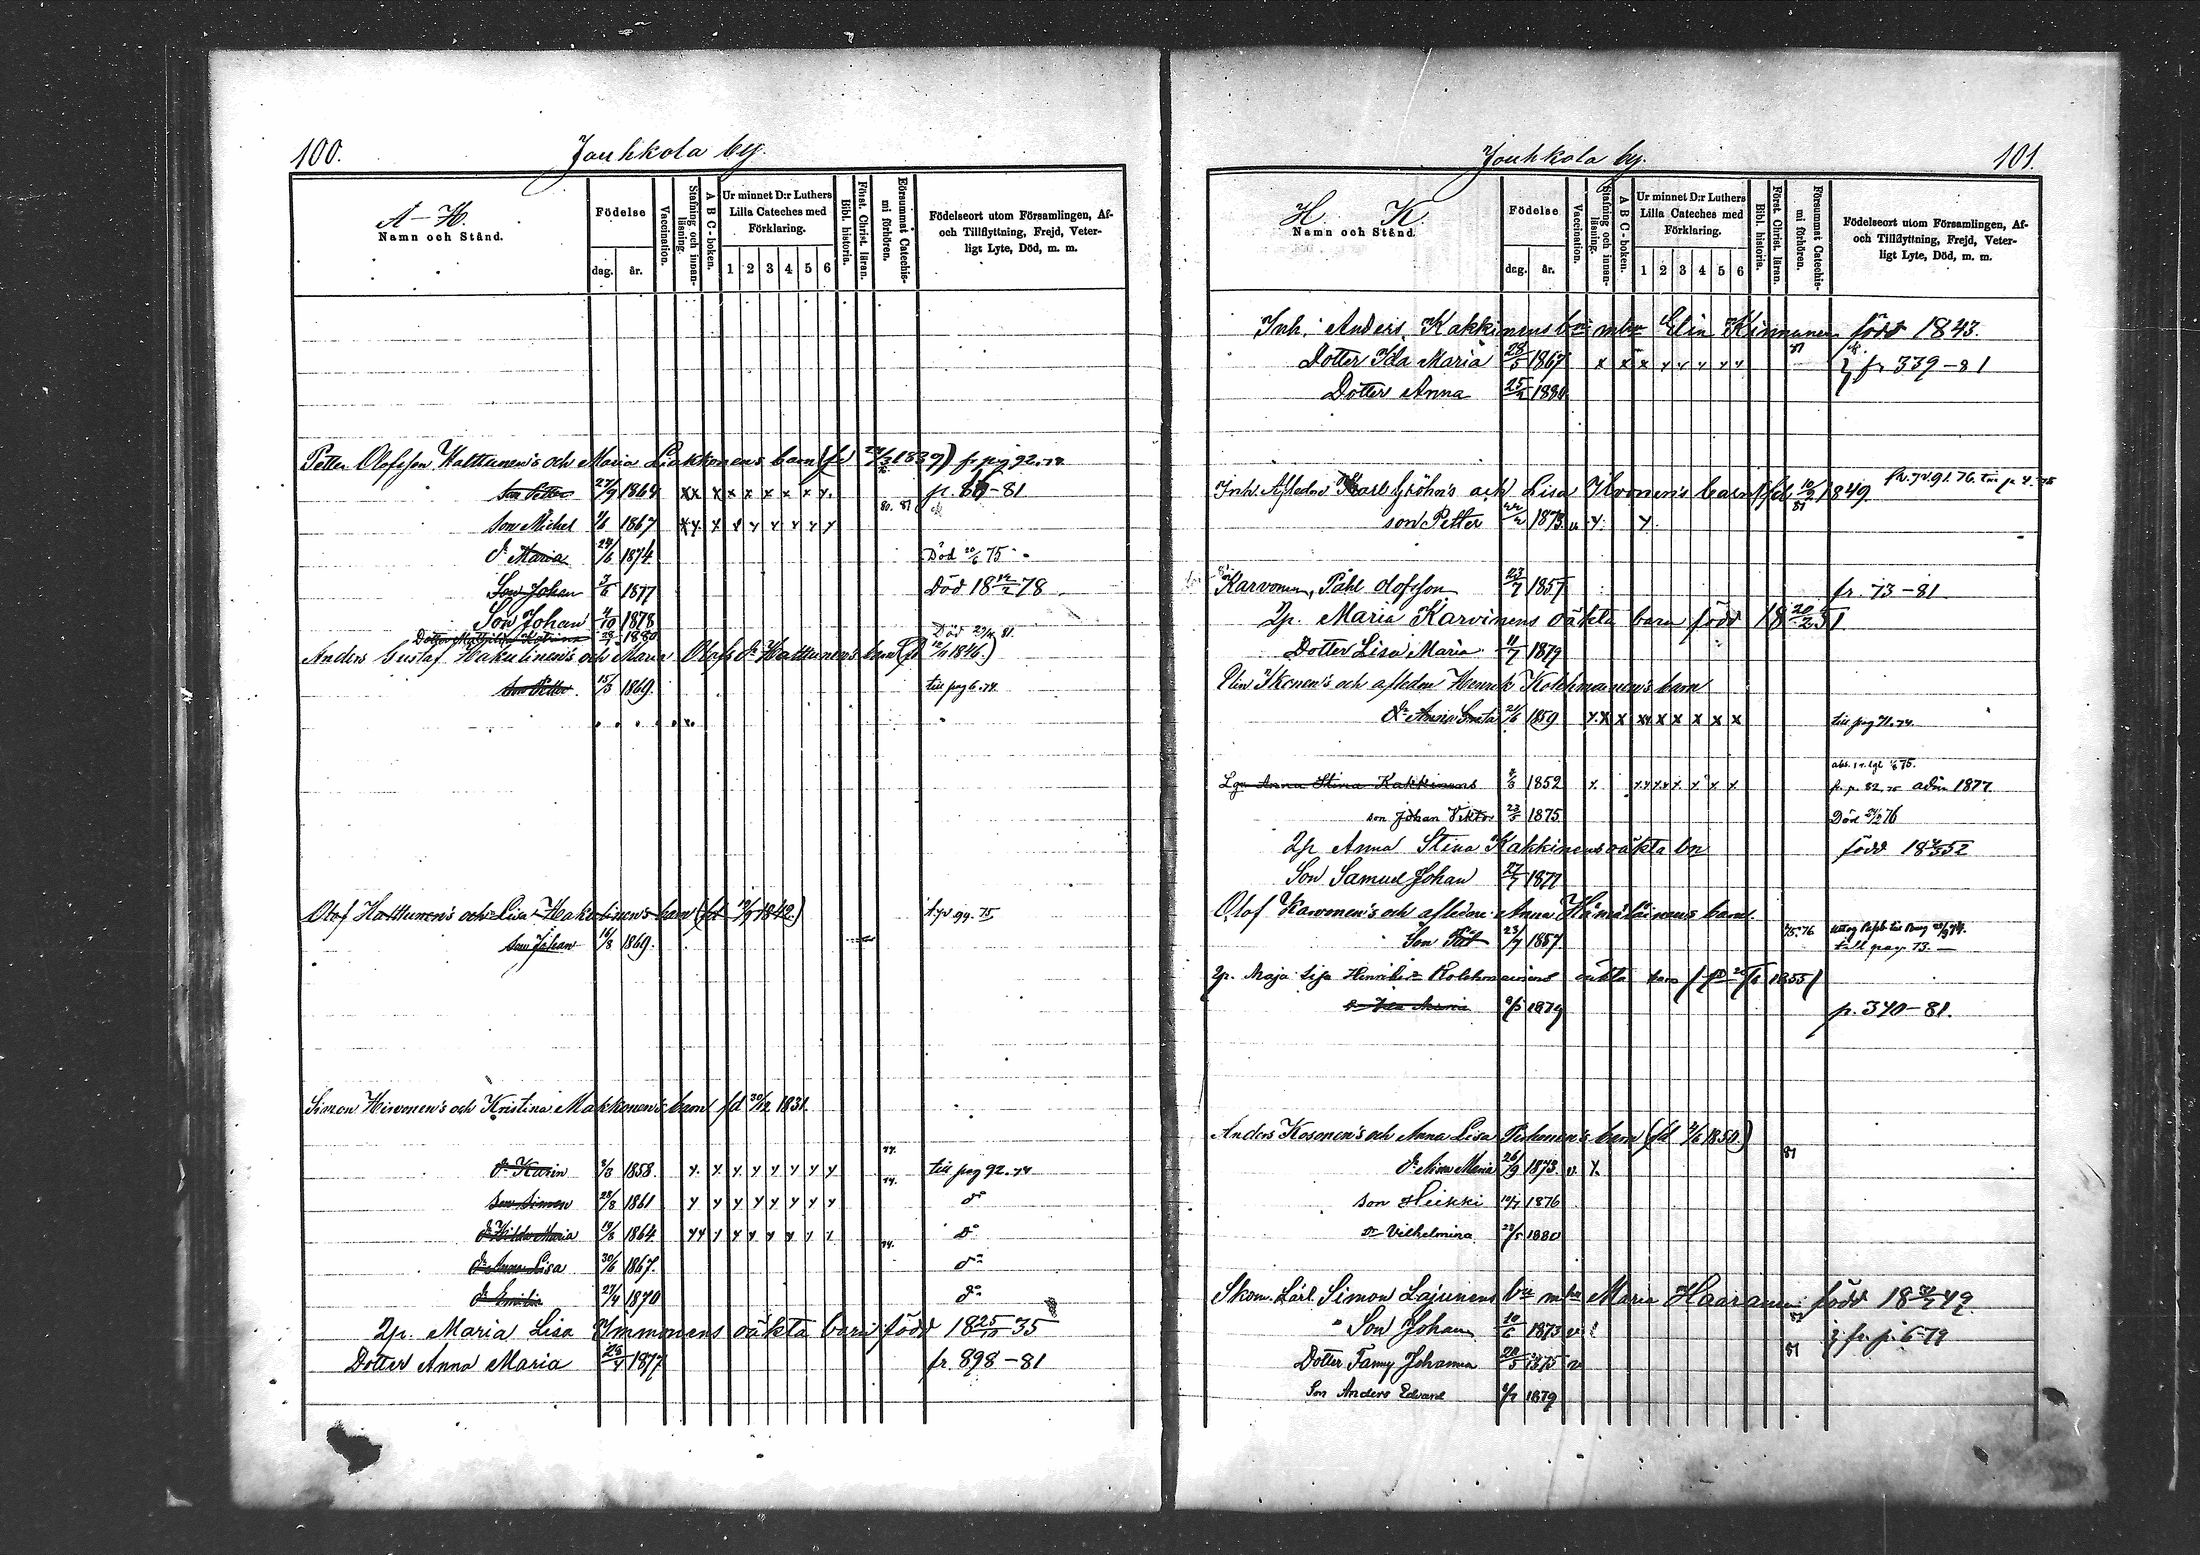 100. Jouhkola by.
A-H.
Namn och Stånd.
Födelse
dag. år.
Vaccination.
Stafning och innanläsning.
A B C-boken.
Ur minnet D:r Luthers Lilla Cateches med Förklaring.
1 2 3 4 5 6
Bibl. historia.
Först. Christ. läran.
Försummat Catechismi förhören.
Födelseort utom Församlingen, Af- och Tillflyttning, Frejd, Veterligt Lyte, Död, m. m.
Petter Olofsson Hattunen's och Maria Liakkonens barn (fd 1839) fr pag 92.74
Son Petter 27/9 1864 x x x x x x x x x p. 80-81
Son Michel 1867 x y y y y y y y y 80. 81
dr Maria 1874 Död 20/6 75
Son Johan 3/6 1877 Död 18 12/2 78
Son Johan 4/10 1878
Dotter Mathilda Katrina 1880 Död 81.
Anders Gustaf Hakulinen's och Maria Olofsdr Hattunen's barn (fd 1846.)
Son Petter 15/3 1869. till pag 6.74
Olof Hattunen's och Lisa Hakulinen's barn (fd 1842.) 99. 75
Son Johan 16/8 1869.
Simon Hirvonen's och Kristina Makkonen's barn fd 30/12 1831
dr Karin 2/3 1858. y y y y y y y y 74. till pag 92.74
Son Simon 28/3 1861 y y y y y y y y 74. do
dr Hilda Maria 19/3 1864 y y y y y y y y do
dr Anna Lisa 30/6 1867. 74. do
dr Emilia 27/4 1870 do
Qp. Maria Lisa Immonens oäkta barn född 18 25/12 35
Dotter Anna Maria 23/4 1877 fr. 898-81
Jouhkola by. 101.
H K.
Namn och Stånd.
Födelse
dag. år.
Vaccination.
Stafning och innanläsning.
A B C-boken.
Ur minnet D:r Luthers Lilla Cateches med Förklaring.
1 2 3 4 5 6
Bibl. historia.
Först. Christ. läran.
Försummat Catechismi förhören.
Födelseort utom Församlingen, Af- och Tillflyttning, Frejd, Veterligt Lyte, Död, m. m.
Inh. Anders Kakkinens bn m hu Elin Kinnunen född 1843.
Dotter Ida Maria 28/5 1867 x x x y y y y y 81 fr 339-81
Dotter Anna 25/2 1880
Inh. Afledne Karl Gröhn's och Lisa Ikonen's barn fd 10/9 1849
son Petter 22/2 1873 v y. y. 81
Karvonen, Påhl Olofsson 23/7 1857 fr. 73-81
Qp. Maria Karvinens oäkta barn född 18 20/2 51
Dotter Lisa Maria 11/7 1879
Elin Ikonen's och afledne Henrik Kolehmainen's barn
dr Anna Greta 21/6 1859 x x x x x x x x x till pag 71.74
Lgr Anna Stina Kakkinens 4/3 1852 y. y y y y y y y fr. p. 82.75 adin 1877
son Johan Viktor 23/5 1875 Död 24/2 76
Qp. Anna Stina Kakkinens oäkta bn född 18 4/3 52
Son Samuel Johan 27/7 1877
Olof Karvonen's och afledne Anna Hämäläinens barn.
Son Pål 23/7 1857. 75. 76 till pag. 73.
Qp. Maja Lisa Henriksdr Kolehmainens oäkta barn 1855
dr Ida Maria 9/3 1879 p. 340-81.
Anders Kosonen's och Anna Lisa Pirhonen's barn (fd 9/6 1850.)
dr Anna Maria 26/9 1873. v y. 81
son Heikki 10/7 1876
dr Vilhelmina 28/5 1880
Skom. Lärl. Simon Lajunens bn m hu Maria Haaranen född 18 49
Son Johan 10/6 1873 v 81 fr. p. 6-79
Dotter Fanny Johanna 20/5 1875 v 81
Son Anders Edvard 6/7 1879